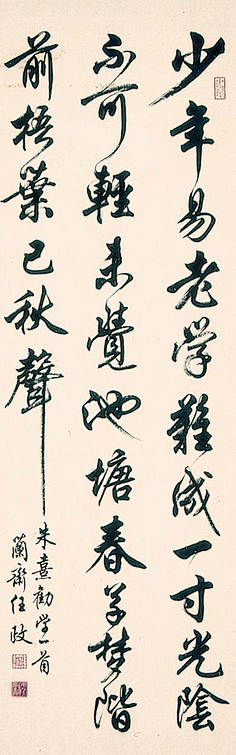 少年易老学难成一寸光陰
不可輕未覺池塘春草梦階
前梧葉已秋聲
朱熹勸学一首
蘭齋任政